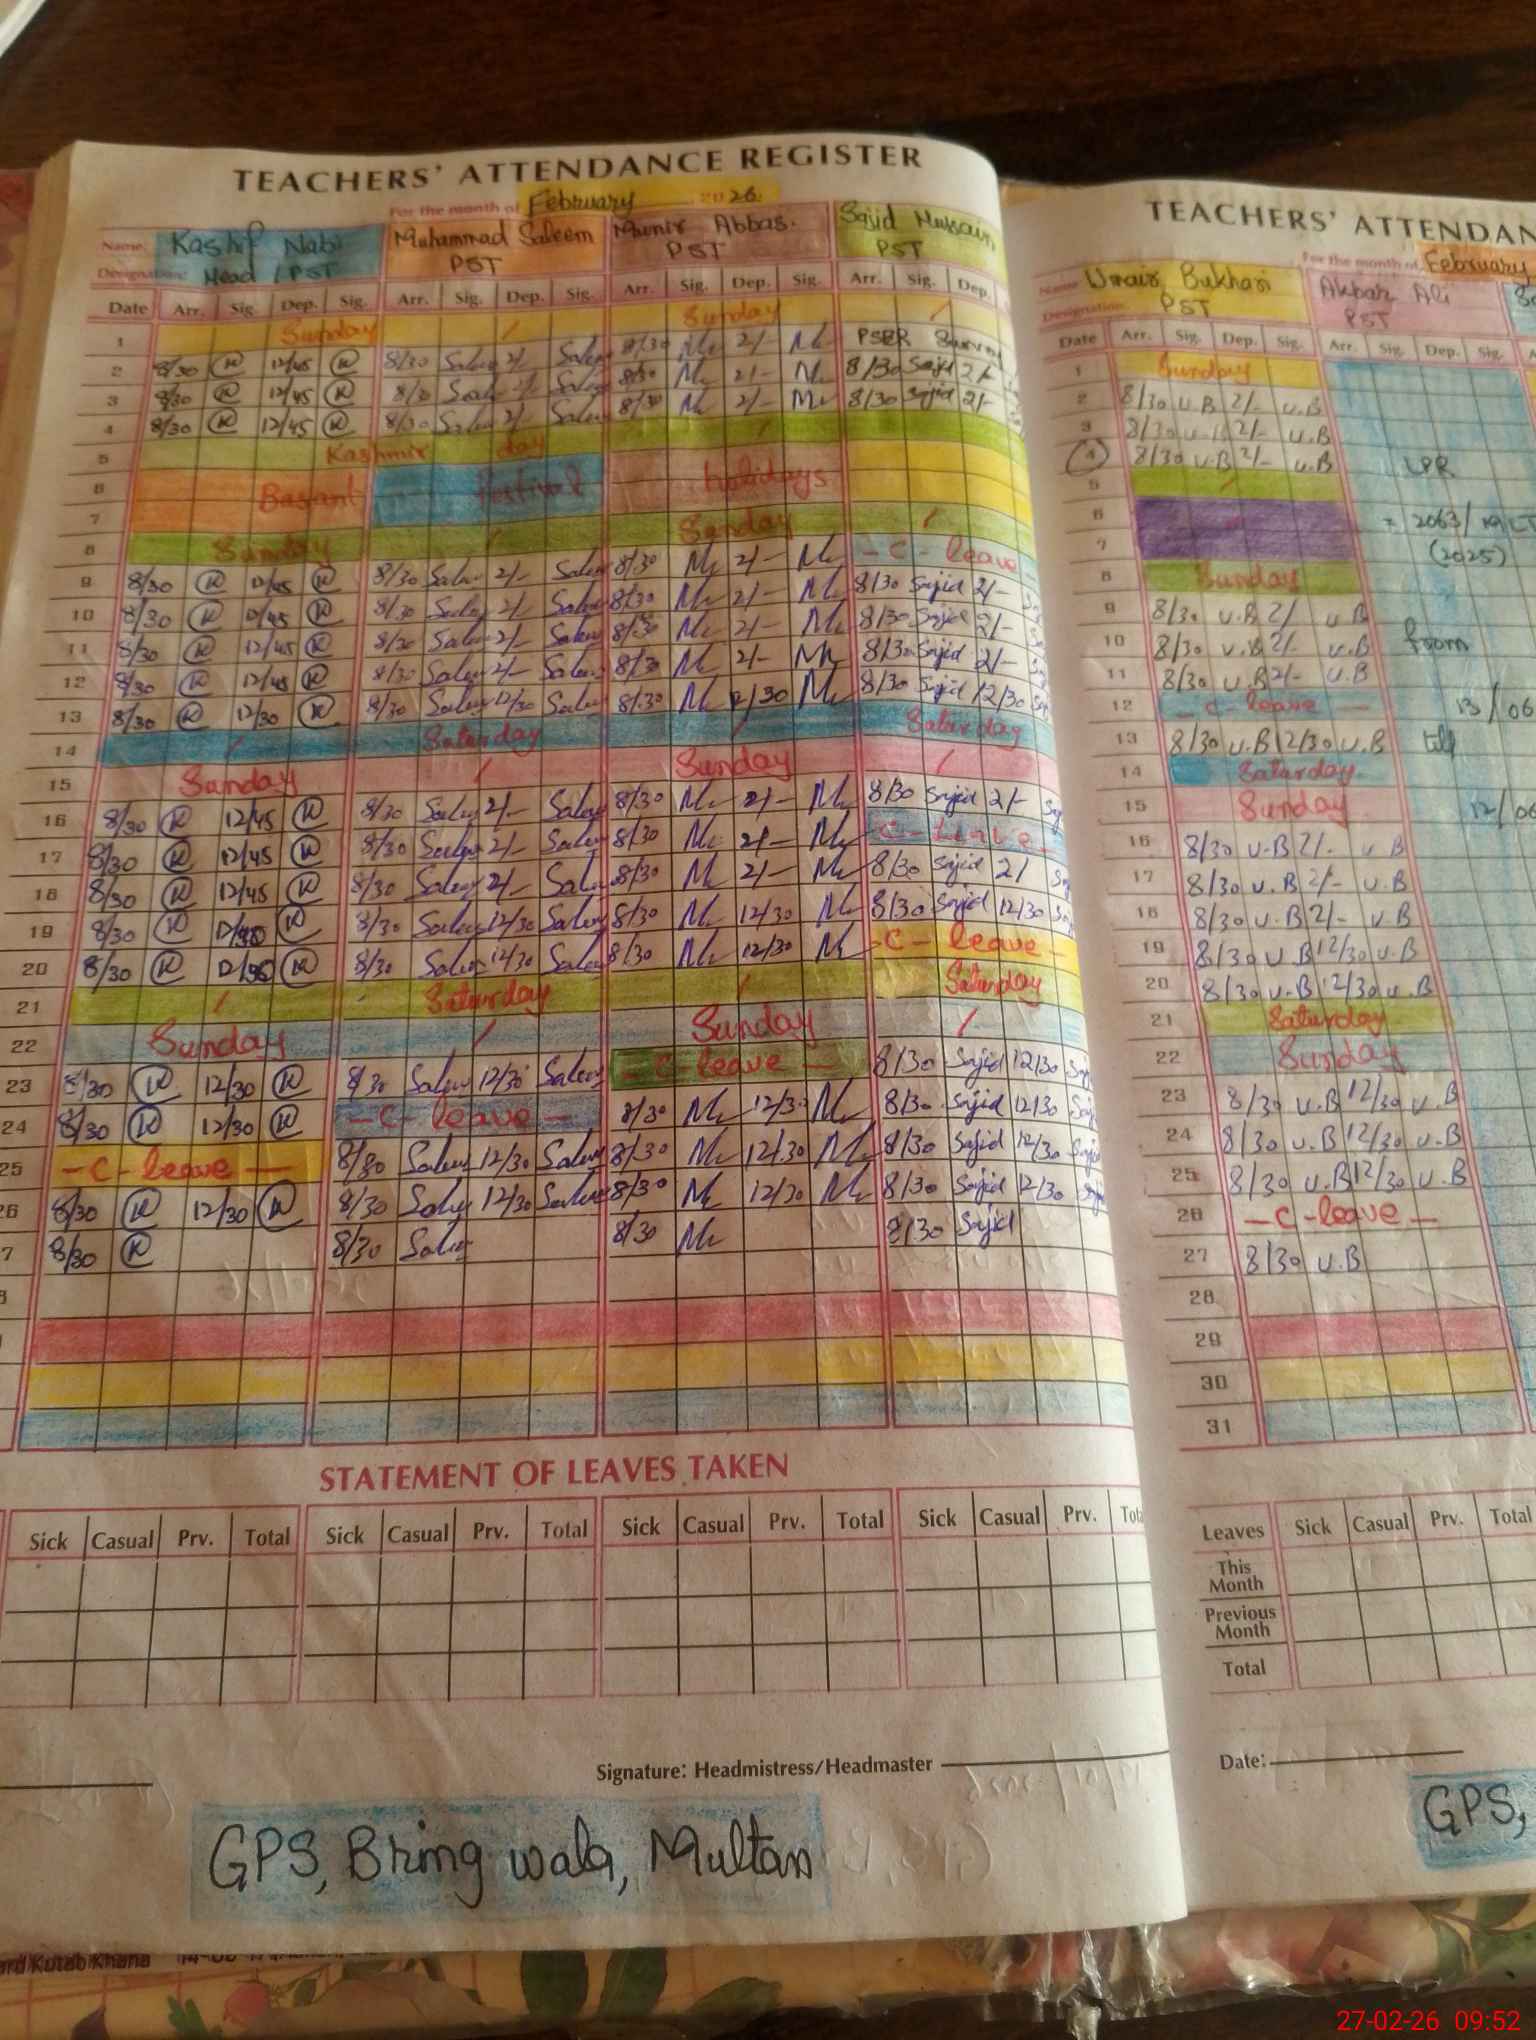 TEACHERS' ATTENDANCE REGISTER
For the month of February 2026
Name: Kashif Nabi Muhammad Saleem Munir Abbas. Sajid Hussain
Designation: Head / PST PST PST PST
Date Arr. Sig. Dep. Sig. Arr. Sig. Dep. Sig. Arr. Sig. Dep. Sig. Arr. Sig. Dep.
1 Sunday / Sunday /
2 8/30 K 12/45 K 8/30 Saleem 2/- Saleem 8/30 M 2/- M PSER
3 8/30 K 12/45 K 8/30 Saleem 2/- Saleem 8/30 M 2/- M 8/30 Sajid 2/-
4 8/30 K 12/45 K 8/30 Saleem 2/- Saleem 8/30 M 2/- M 8/30 Sajid 2/-
5 Kashmir day /
6 Basant festival holidays
7
8 Sunday / Sunday /
9 8/30 K 12/45 K 8/30 Saleem 2/- Saleem 8/30 M 2/- M - C - leave -
10 8/30 K 12/45 K 8/30 Saleem 2/- Saleem 8/30 M 2/- M 8/30 Sajid 2/-
11 8/30 K 12/45 K 8/30 Saleem 2/- Saleem 8/30 M 2/- M 8/30 Sajid 2/-
12 8/30 K 12/45 K 8/30 Saleem 2/- Saleem 8/30 M 2/- M 8/30 Sajid 2/-
13 8/30 K 12/30 K 8/30 Saleem 12/30 Saleem 8/30 M 12/30 M 8/30 Sajid 12/30
14 / Saturday / Saturday
15 Sunday / Sunday /
16 8/30 K 12/45 K 8/30 Saleem 2/- Saleem 8/30 M 2/- M 8/30 Sajid 2/-
17 8/30 K 12/45 K 8/30 Saleem 2/- Saleem 8/30 M 2/- M - C - leave -
18 8/30 K 12/45 K 8/30 Saleem 2/- Saleem 8/30 M 2/- M 8/30 Sajid 2/
19 8/30 K K 8/30 Saleem 12/30 Saleem 8/30 M 12/30 M 8/30 Sajid 12/30
20 8/30 K K 8/30 Saleem 12/30 Saleem 8/30 M 12/30 M - C - leave -
21 / Saturday / Saturday
22 Sunday / Sunday /
23 8/30 K 12/30 K 8/30 Saleem 12/30 Saleem - C - leave - 8/30 Sajid 12/30
24 8/30 K 12/30 K - C - leave - 8/30 M 12/30 M 8/30 Sajid 12/30
25 - C - leave - 8/30 Saleem 12/30 Saleem 8/30 M 12/30 M 8/30 Sajid 12/30
26 8/30 K 12/30 K 8/30 Saleem 12/30 Saleem 8/30 M 12/30 M 8/30 Sajid 12/30
7 8/30 K 8/30 Saleem 8/30 M 8/30 Sajid
STATEMENT OF LEAVES TAKEN
Sick Casual Prv. Total Sick Casual Prv. Total Sick Casual Prv. Total Sick Casual Prv.
Signature: Headmistress/Headmaster
GPS, Bhring wala, Multan
TEACHERS' ATTENDAN
For the month of February
Name Umair Bukhari Akbar Ali
Designation: PST PST
Date Arr. Sig. Dep. Sig. Arr. Sig. Dep. Sig.
1 Sunday
2 8/30 U.B 2/- U.B
3 8/30 U.B 2/- U.B
4 8/30 U.B 2/- U.B LPR
5 /
6 2063/
7 (2025)
8 Sunday
9 8/30 U.B 2/ U B
10 8/30 U.B 2/- U.B from
11 8/30 U.B 2/- U.B
12 - C - leave - 13/06
13 8/30 U.B 12/30 U.B till
14 Saturday
15 Sunday 12/06
16 8/30 U.B 2/- U B
17 8/30 U.B 2/- U.B
18 8/30 U.B 2/- U.B
19 8/30 U B 12/30 U.B
20 8/30 U.B 12/30 U.B
21 Saturday
22 Sunday
23 8/30 U.B 12/30 U.B
24 8/30 U.B 12/30 U.B
25 8/30 U.B 12/30 U.B
26 - C - leave -
27 8/30 U.B
28
29
30
31
Leaves Sick Casual Prv. Total
This Month
Previous Month
Total
Date:
GPS,
Kutab Khana
27-02-26 09:52